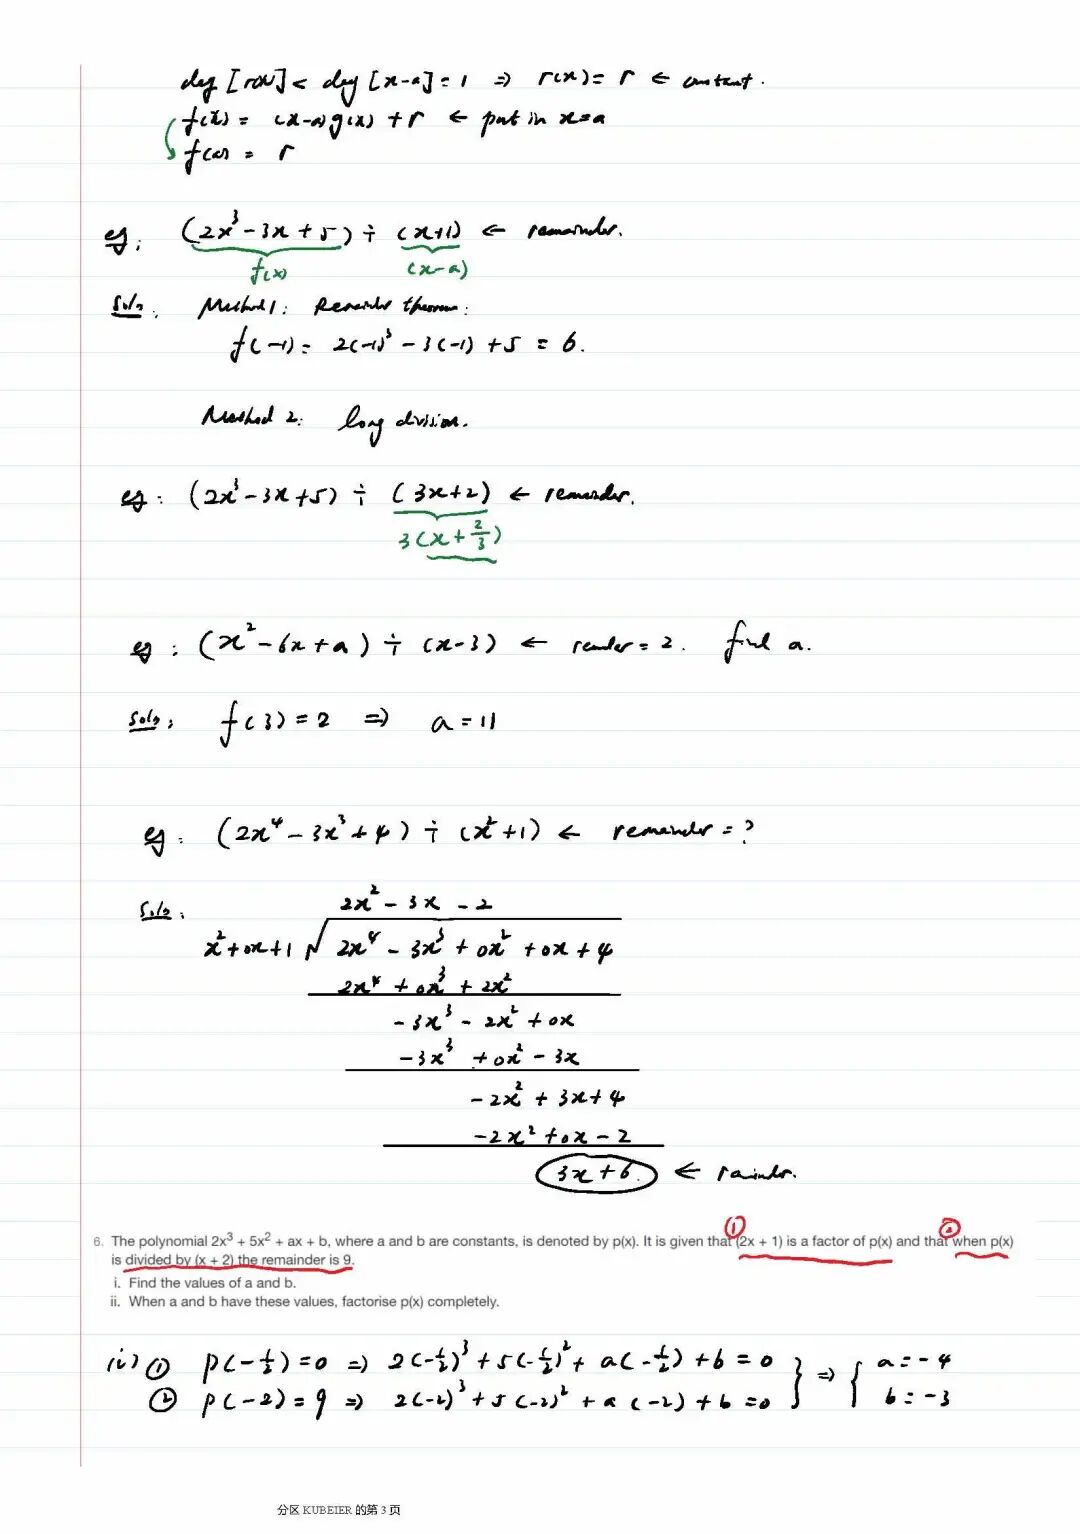 deg [r(x)] < deg [x-a] = 1 ⇒ r(x) = r ← constant.
f(x) = (x-a)q(x) + r ← put in x=a
f(a) = r
eg: (2x³ - 3x + 5) ÷ (x+1) ← remainder.
f(x) (x-a)
Soln: Method 1: Remainder theorem:
f(-1) = 2(-1)³ - 3(-1) + 5 = 6.
Method 2: long division.
eg: (2x³ - 3x + 5) ÷ (3x+2) ← remainder.
3(x + 2/3)
eg: (x² - 6x + a) ÷ (x-3) ← remainder = 2. find a.
Soln: f(3) = 2 ⇒ a = 11
eg: (2x⁴ - 3x³ + 4) ÷ (x²+1) ← remainder = ?
Soln: 2x² - 3x - 2
x²+0x+1 √ 2x⁴ - 3x³ + 0x² + 0x + 4
2x⁴ + 0x³ + 2x²
-3x³ - 2x² + 0x
-3x³ + 0x² - 3x
-2x² + 3x + 4
-2x² + 0x - 2
3x + 6. ← remainder.
① ②
6. The polynomial 2x³ + 5x² + ax + b, where a and b are constants, is denoted by p(x). It is given that (2x + 1) is a factor of p(x) and that when p(x)
is divided by (x + 2) the remainder is 9.
i. Find the values of a and b.
ii. When a and b have these values, factorise p(x) completely.
(i) ① p(-1/2) = 0 ⇒ 2(-1/2)³ + 5(-1/2)² + a(-1/2) + b = 0 } ⇒ { a = -4
② p(-2) = 9 ⇒ 2(-2)³ + 5(-2)² + a(-2) + b = 0 b = -3
分区 KUBEIER 的第 3 页